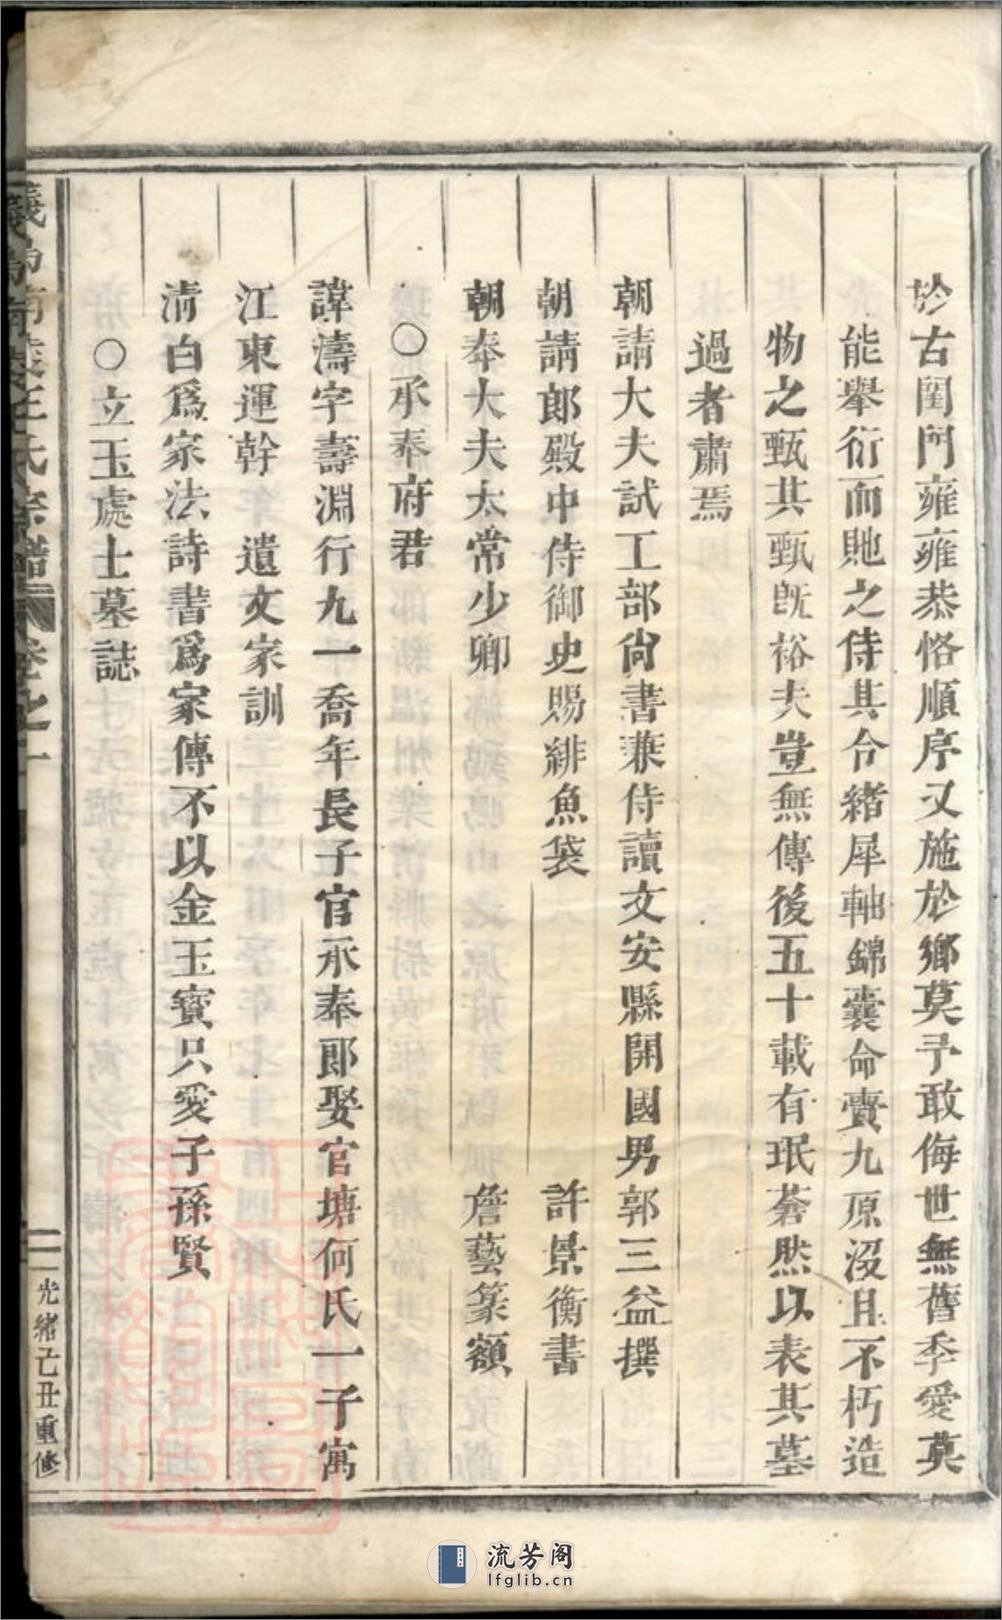 於古閨門雍雍恭恪順序又施於鄉莫予敢侮世無舊季愛莫
能舉衍而貤之侍其令緒犀軸錦囊命賁九原沒且不朽造
物之甄其甄旣裕夫豈無傳後五十載有珉蒼然以表其墓
過者肅焉
朝請大夫試工部尙書兼侍讀文安縣開國男郭三益撰
朝請郞殿中侍御史賜緋魚袋 許景衡書
朝奉大夫太常少卿 詹藝篆額
○承奉府君
諱濤字壽淵行九一喬年長子官承奉郞娶官塘何氏一子寓
江東運幹 遺文家訓
淸白爲家法詩書爲家傳不以金玉寳只愛子孫賢
○立玉處士墓誌
王氏宗譜 卷之十
二 光緖丁丑重修
流芳阁
lfglib.cn